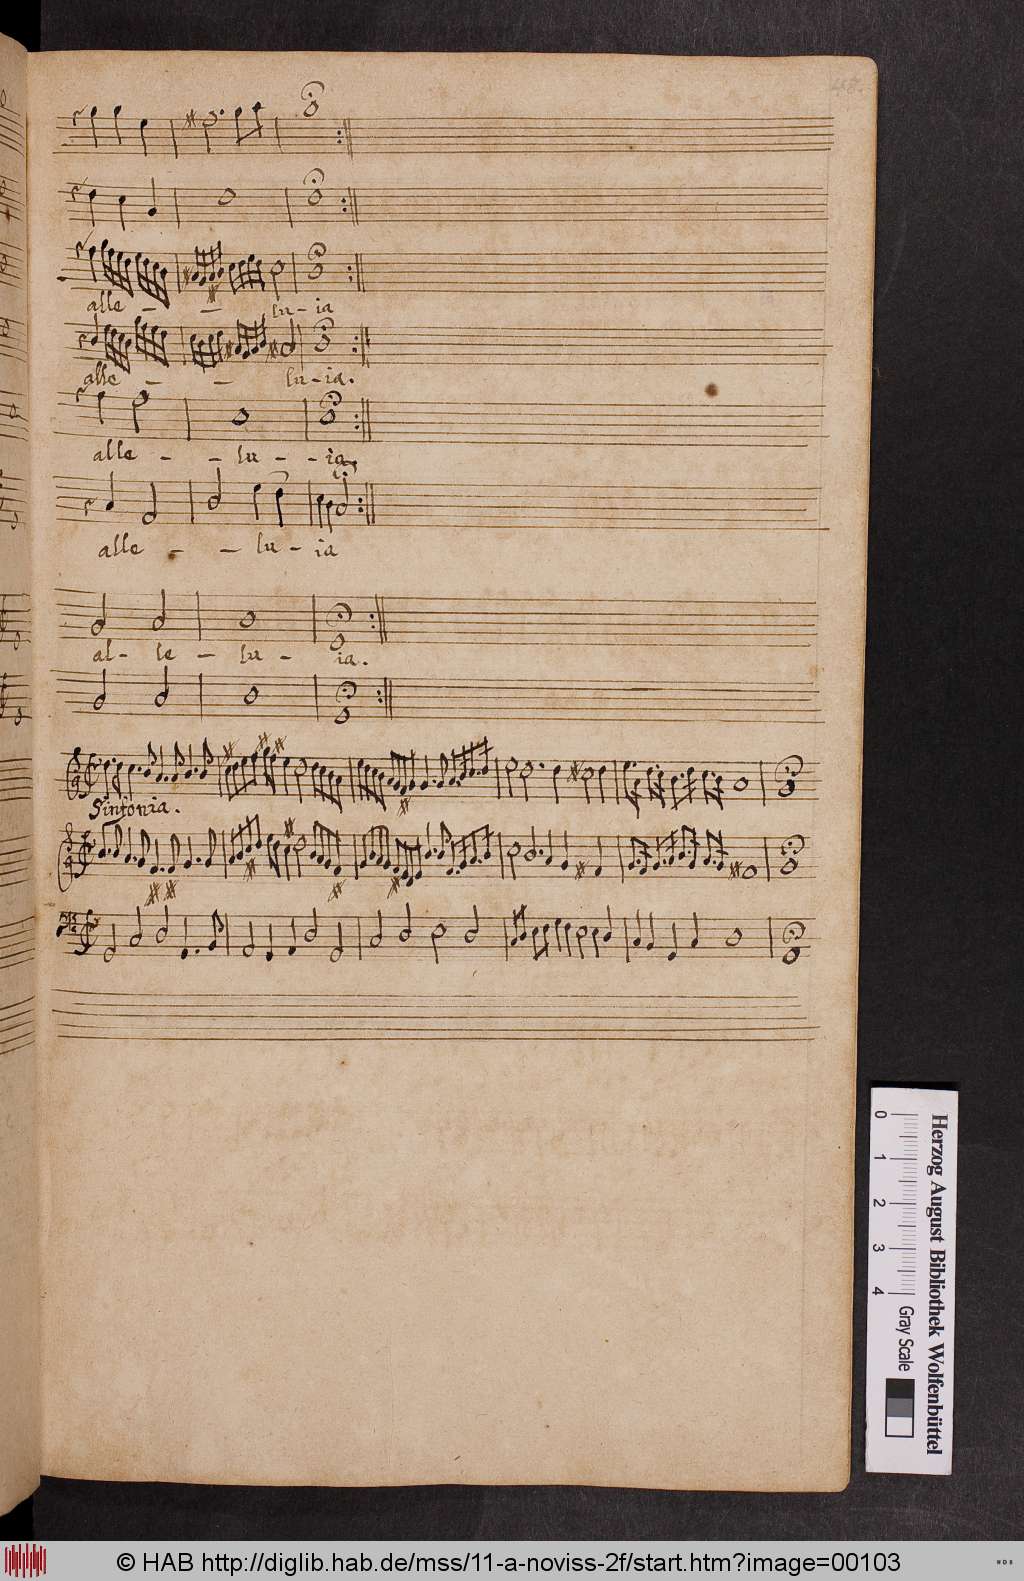 48.
alle - - lu - ia
alle - - lu - ia.
alle - - lu - - ia,
alle - - lu - ia
al - le - lu - ia.
Sinfonia.
Herzog August Bibliothek Wolfenbüttel
0 1 2 3 4 Gray Scale
© HAB http://diglib.hab.de/mss/11-a-noviss-2f/start.htm?image=00103